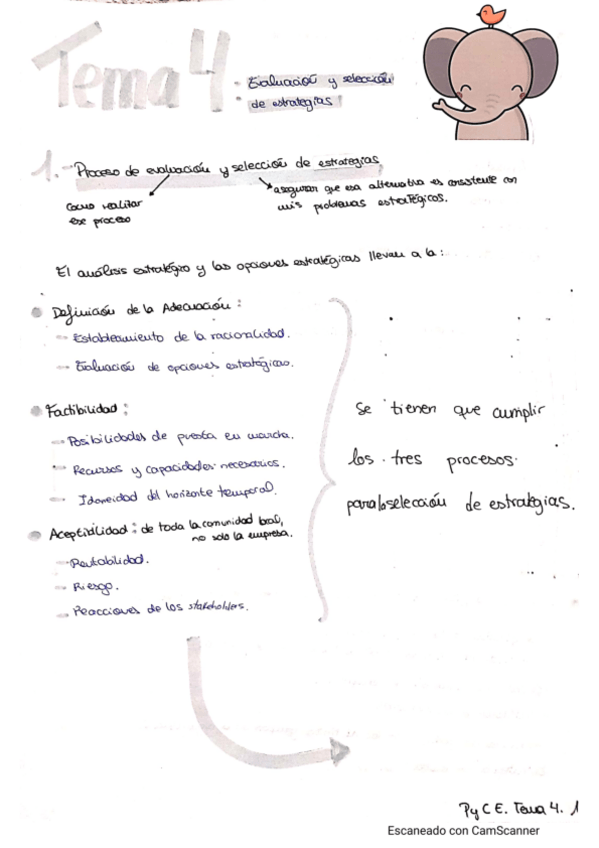 Tema 4
- Evaluación y selección
de estrategias
1.- Proceso de evaluación y selección de estrategias
como realizar
ese proceso
aseguran que esa alternativa es consistente con
mis problemas estratégicos.
El análisis estratégico y las opciones estratégicas llevan a la:
Definición de la Adecuación:
- Establecimiento de la racionalidad.
- Evaluación de opciones estratégicas.
Factibilidad:
- Posibilidades de puesta en marcha.
- Recursos y capacidades necesarios.
- Idoneidad del horizonte temporal.
Aceptibilidad: de toda la comunidad local,
no solo la empresa.
- Rentabilidad.
- Riesgo.
- Reacciones de los stakeholders.
Se tienen que cumplir
los tres procesos
para la selección de estrategias.
PyCE. Tema 4. 1
Escaneado con CamScanner